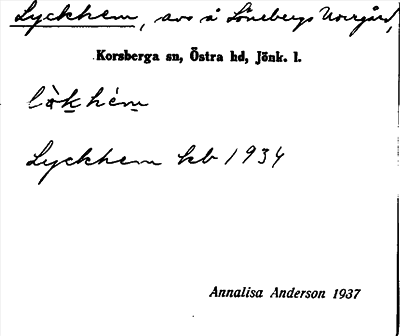 Lyckhem, avs å Lönebergs Norrgård,
Korsberga sn, Östra hd, Jönk. l.
lὸkhém
Lyckhem kb 1934
Annalisa Anderson 1937